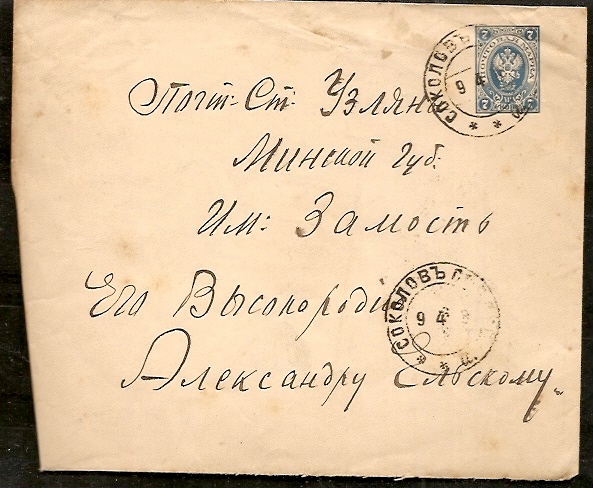 СОКОЛОВЪ
7 7
ПОЧТОВАЯ МАРКА
9 4
7 7
Почт: Ст: Узляны
Минской Губ:
Им: Замость
Его Высокородію
СОКОЛОВЪ
9 4
Александру Ельскому